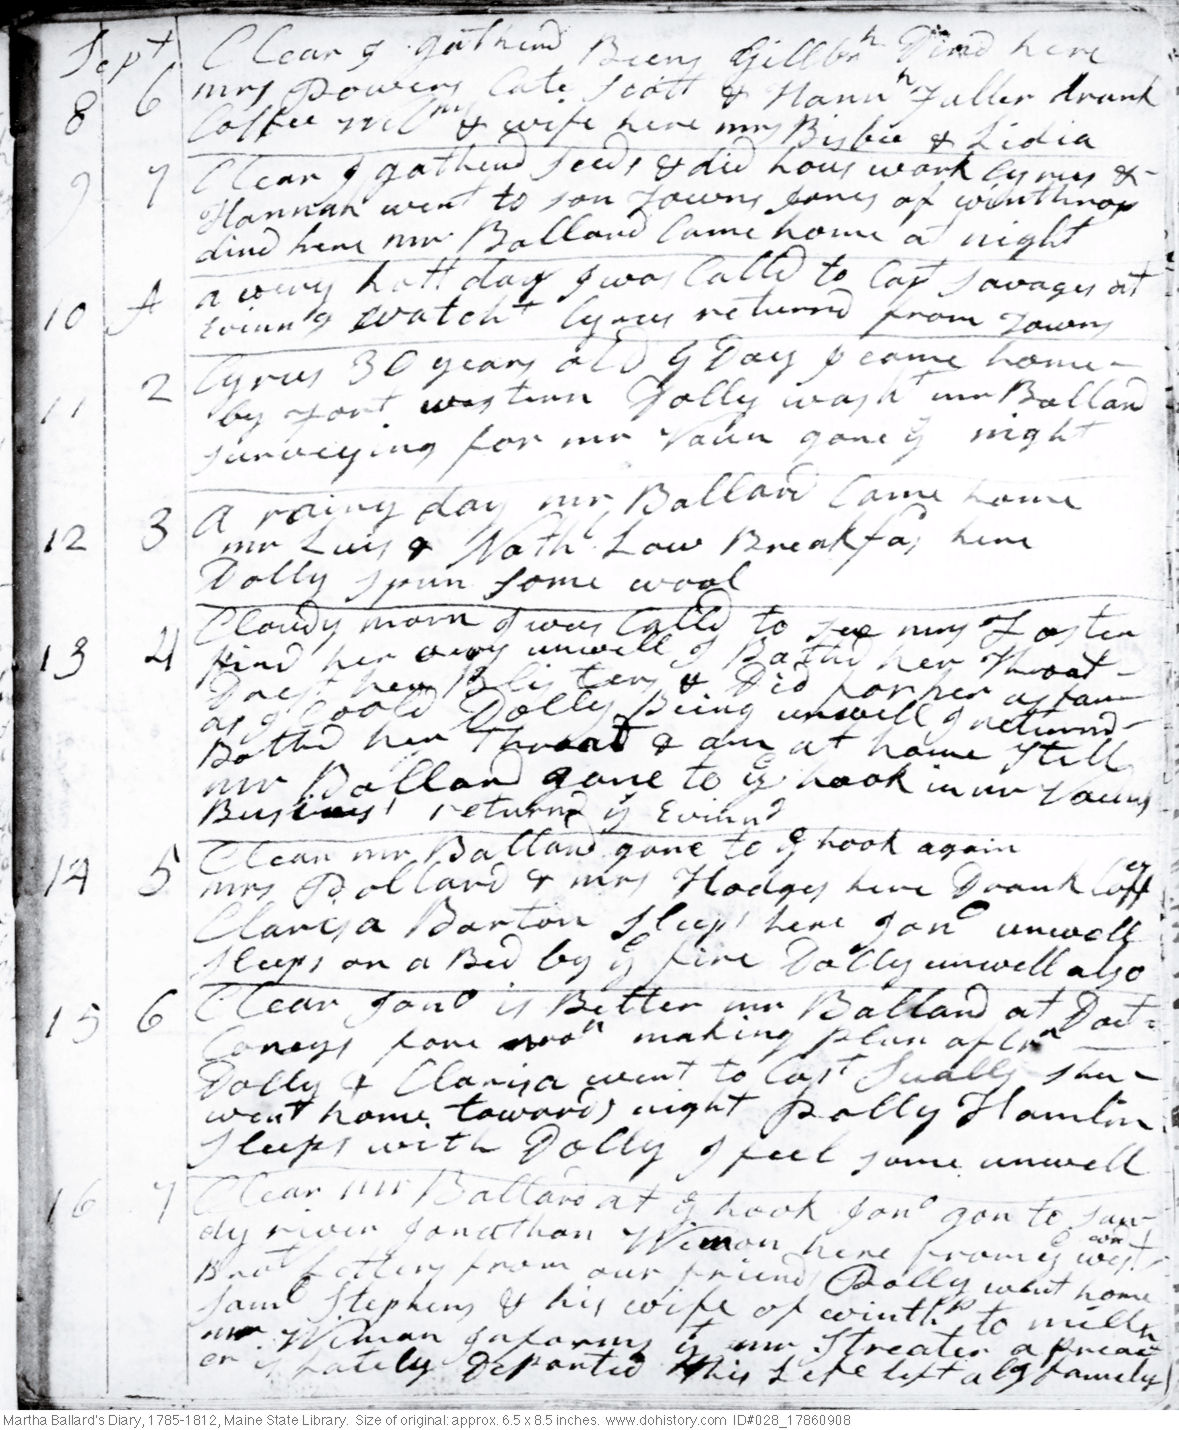 Sept Clear I gatherd Beens Gillbn Dind here
8 6 mrs Powers Cate Scott & Hannh Fuller drank
Coffee & wife here mrs Bisbe & Lidia
9 7 Clear I gatherd seeds & did hous work Cyrus &
Hannah went to son Towns Jones of winthrop
dind here mr Ballard Came home at night
10 A a very hott day I was Calld to Capt Savages at
Evinng watcht Cyrus returnd from Towns
11 2 Cyrus 30 years old ys Day I came home
by fort western Dolly washt mr Ballard
surveying for mr Vaun gone ys night
12 3 A rainy day mr Ballard Came home
mr Luis & Nathl Low Breakfas here
Dolly spun some wool
13 4 Cloudy morn I was Calld to see mrs Foster
find her very unwell I Bathd her Throat
Drest her Blisters & Did for her as far
as I Coold Dolly Being unwell I returnd
Bathd her Throat & am at home Still
mr Ballard gone to ye hook in mr Vauns
Business returnd ys Evinng
14 5 Clear mr Ballard gone to ye hook again
mrs Pollard & mrs Hodges here Drank Coffe
Clarisa Barton Sleeps here Jond unwell
Sleeps on a Bed by ye fire Dolly unwell also
15 6 Clear Jond is Better mr Ballard at Doct
Coneys fore noon making plan aftrn
Dolly & Clarisa went to Capt Sualls shee
went home towards night Polly Hamlin
sleeps with Dolly I feel some unwell
16 7 Clear mr Ballard at ye hook Jond gon to San
dy river Jonathan Wiman here from ye westwrt
Brot Letters from our friends Polly went home
Saml Stephens & his wife of winthp to mills
mr Wiman Informs yt mr Streater a preach
er is Lately Departed this Life left a lg family
Martha Ballard's Diary, 1785-1812, Maine State Library. Size of original: approx. 6.5 x 8.5 inches. www.dohistory.com ID#028_17860908